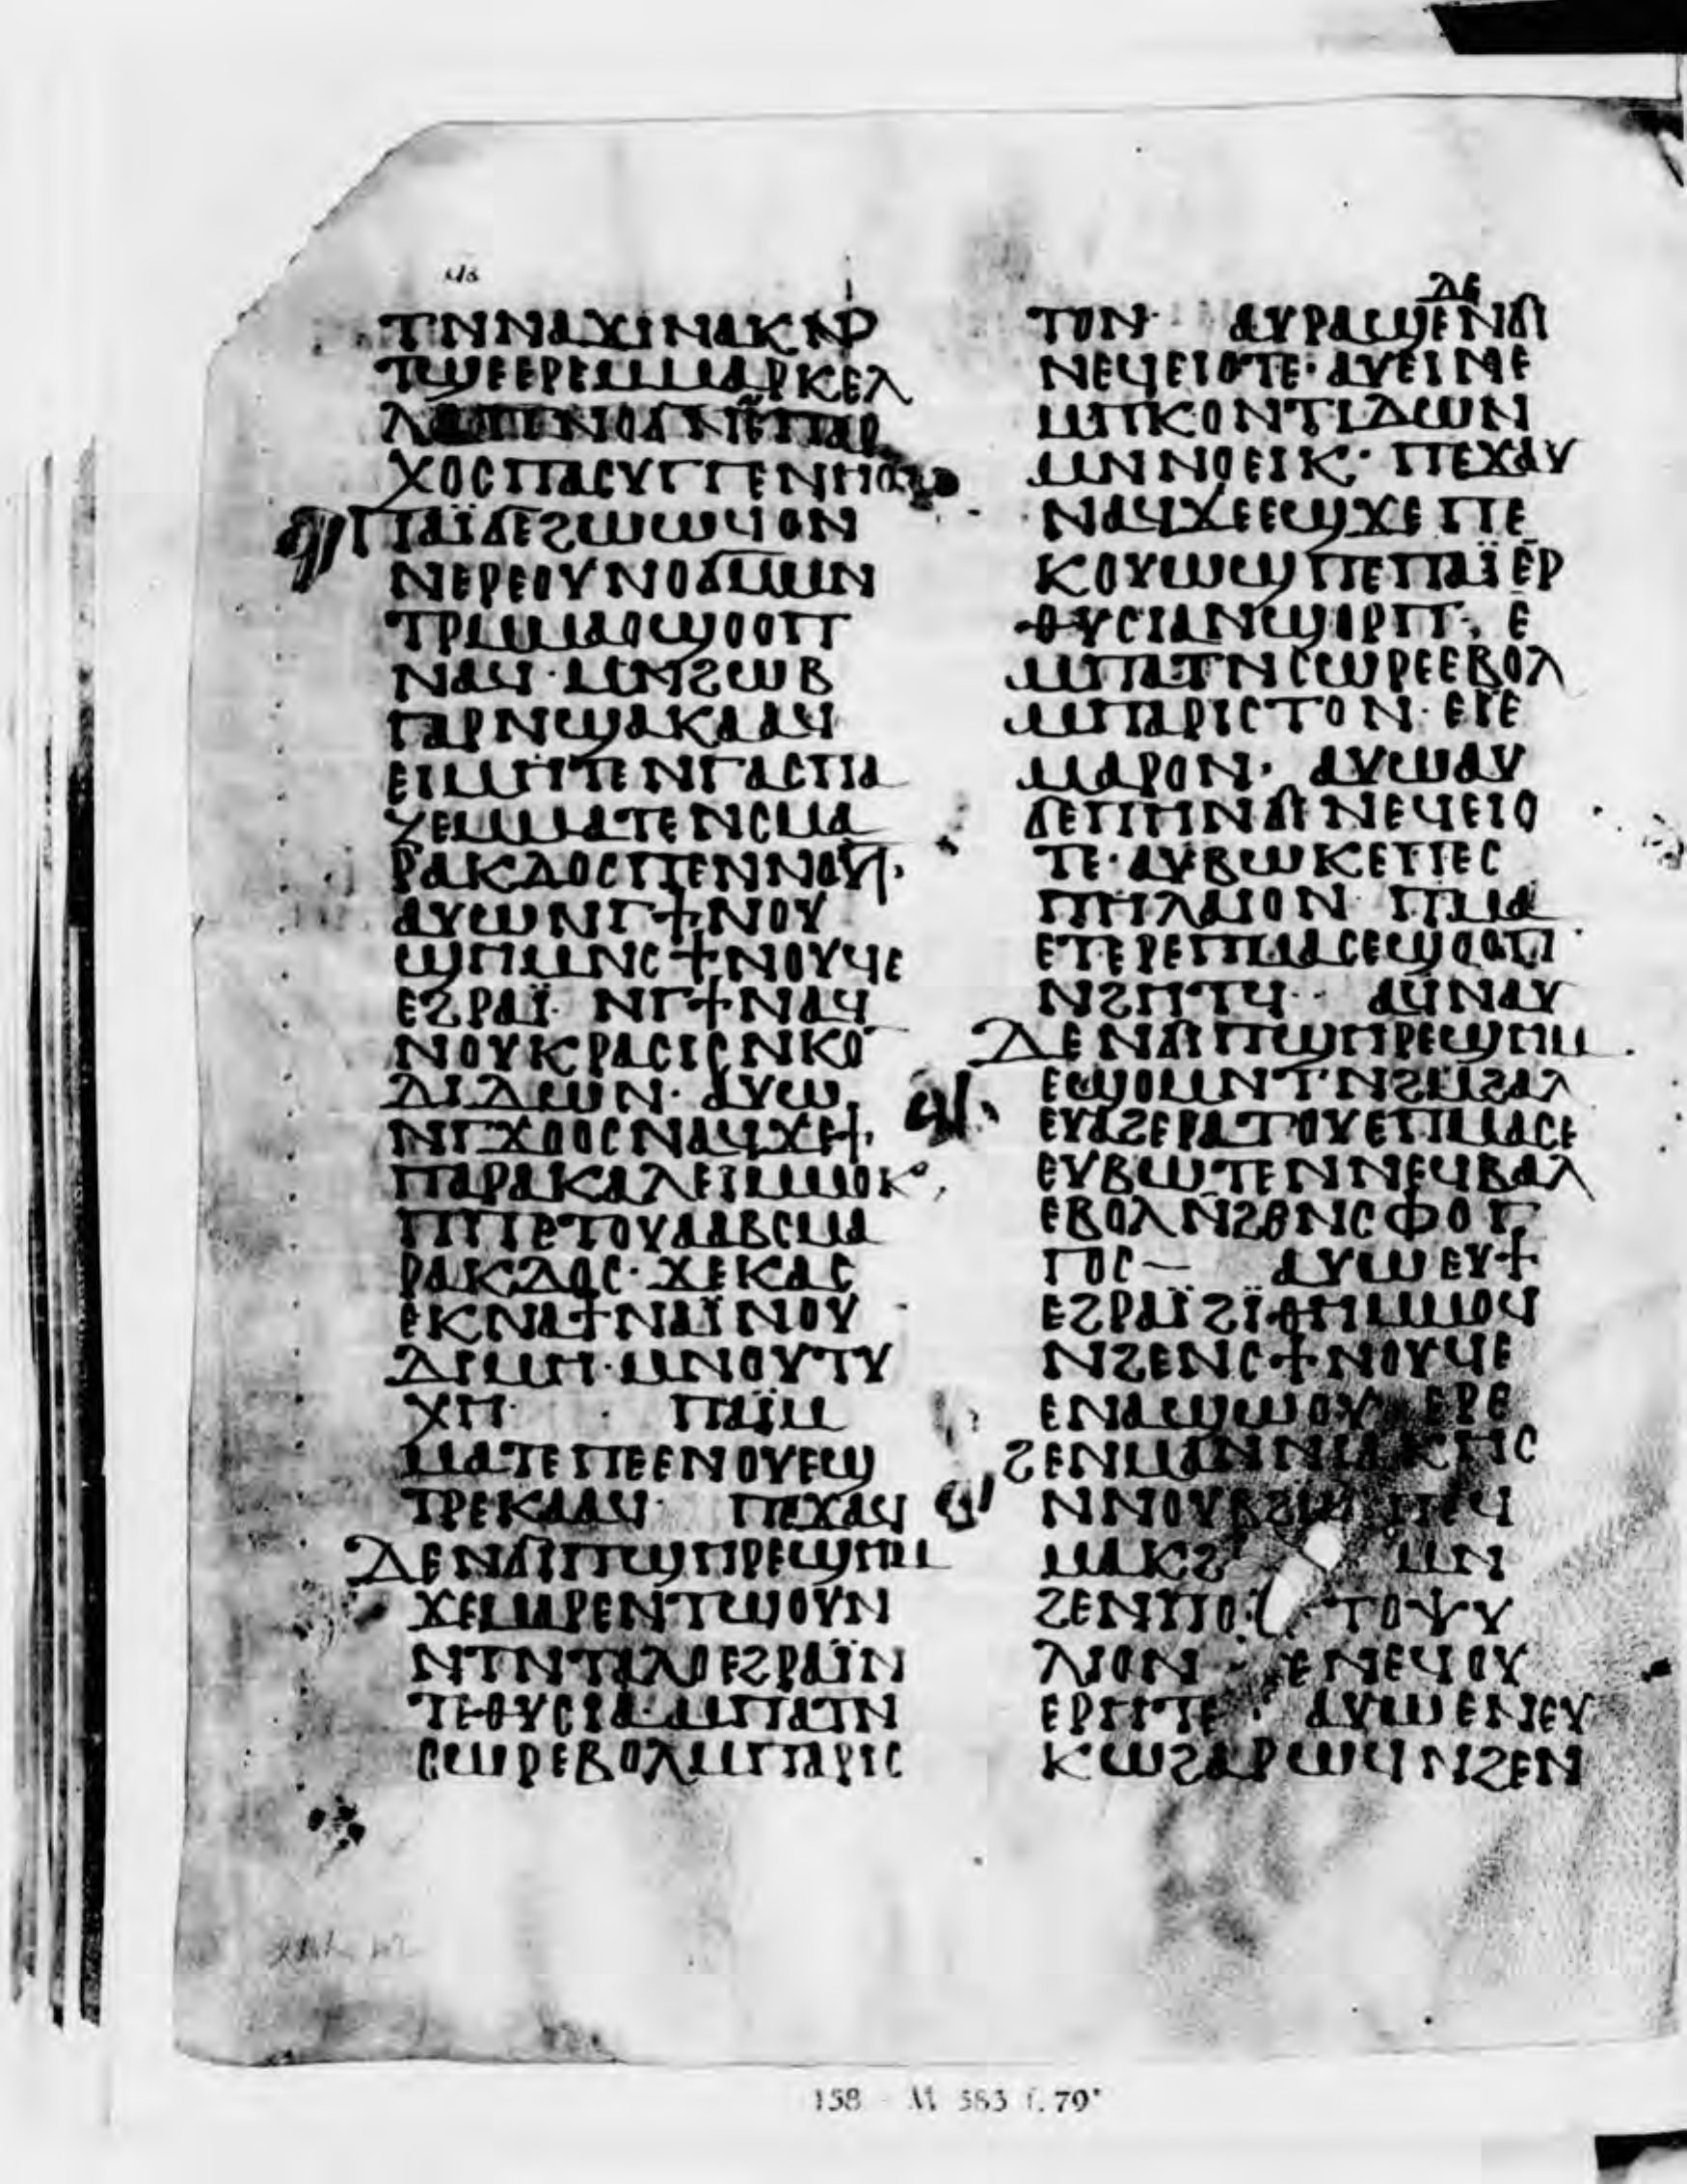 ⲧⲛⲛⲁϫⲓⲛⲁⲕⲛⲣ
ⲧϣⲉⲉⲣⲉⲙⲙⲁⲣⲕⲉⲗ
ⲭⲟⲥⲡⲁⲥⲩⲅⲅⲉⲛⲏⲥ
ⲡⲁⲓ̈ⲇⲉϩⲱⲱϥⲟⲛ
ⲛⲉⲣⲉⲟⲩⲛⲟϭⲙⲙⲛ
ⲧⲣⲙⲙⲁⲟϣⲟⲟⲡ
ⲛⲁϥ· ⲙⲛϩⲱⲃ
ⲅⲁⲣⲛϣⲁⲕⲁⲁϥ
ⲉⲓⲙⲏⲧⲓⲛⲅⲁⲥⲡⲁ
ⲍⲉⲙⲙⲁⲧⲉⲛⲥⲙⲁ
ⲣⲁⲕⲇⲟⲥⲡⲉⲛⲛⲟⲩⲧ·
ⲁⲩⲱⲛⲅϯⲛⲟⲩ
ϣⲏⲙⲛⲥϯⲛⲟⲩϥⲉ
ⲉϩⲣⲁⲓ̈· ⲛⲅϯⲛⲁϥ
ⲛⲟⲩⲕⲣⲁⲥⲓⲥⲛⲕⲟ
ⲇⲓⲇⲱⲛ· ⲁⲩⲱ
ⲛⲅϫⲟⲟⲥⲛⲁϥϫⲉϯ
ⲡⲁⲣⲁⲕⲁⲗⲉⲓⲙⲙⲟⲕ
ⲡⲡⲉⲧⲟⲩⲁⲁⲃⲥⲙⲁ
ⲣⲁⲕⲇⲟⲥ· ϫⲉⲕⲁⲥ
ⲉⲕⲛⲁϯⲛⲁⲓ̈ⲛⲟⲩ
ⲇⲓⲙⲏ· ⲙⲛⲟⲩⲧⲩ
ⲭⲏ· ⲡⲁⲓ̈ⲙ
ⲙⲁⲧⲉⲡⲉⲉⲛⲟⲩⲉϣ
ⲧⲣⲉⲕⲁⲁϥ· ⲡⲉϫⲁϥ
ⲇⲉⲛϭⲓⲡϣⲏⲣⲉϣⲏⲙ
ϫⲉⲙⲁⲣⲉⲛⲧⲱⲟⲩⲛ
ⲛⲧⲛⲧⲁⲗⲟⲉϩⲣⲁⲓ̈ⲛ
ⲧⲉⲑⲩⲥⲓⲁ· ⲙⲡⲁⲧⲛ
ⲥⲱⲣⲉⲃⲟⲗⲙⲡⲁⲣⲓⲥ
ⲇⲉ
ⲧⲟⲛ· ⲁⲩⲣⲁϣⲉⲛϭⲓ
ⲛⲉϥⲉⲓⲟⲧⲉ· ⲁⲩⲉⲓⲛⲉ
ⲙⲡⲕⲟⲛⲧⲓⲇⲱⲛ
ⲙⲛⲛⲟⲉⲓⲕ· ⲡⲉϫⲁⲩ
ⲛⲁϥϫⲉⲉϣϫⲉⲡⲉ
ⲕⲟⲩⲱϣⲡⲉⲡⲁⲓ̈ⲉⲣ
ⲑⲩⲥⲓⲁⲛϣⲟⲣⲡ· ⲉ
ⲙⲡⲁⲧⲛⲥⲱⲣⲉⲉⲃⲟⲗ
ⲙⲡⲁⲣⲓⲥⲧⲟⲛ· ⲉⲓⲉ
ⲙⲁⲣⲟⲛ· ⲁⲩⲱⲁⲩ
ϭⲉⲡⲏⲛϭⲓⲛⲉϥⲉⲓⲟ
ⲧⲉ· ⲁⲩⲃⲱⲕⲉⲡⲉⲥ
ⲡⲏⲗⲁⲓⲟⲛ ⲡⲙⲁ
ⲉⲧⲉⲣⲉⲡⲙⲁⲥⲉϣⲟⲟⲡ
ⲛϩⲏⲧϥ· ⲁϥⲛⲁⲩ
ⲇⲉⲛϭⲓⲡϣⲏⲣⲉϣⲏⲙ
ⲉϣⲟⲙⲛⲧⲛϩⲙϩⲁⲗ
ⲉⲩⲁϩⲉⲣⲁⲧⲟⲩⲉⲡⲙⲁⲥⲉ
ⲉⲩⲃⲱⲧⲉⲛⲛⲉϥⲃⲁⲗ
ⲉⲃⲟⲗⲛϩⲉⲛⲥⲫⲟⲅ
ⲅⲟⲥ— ⲁⲩⲱⲉⲩϯ
ⲉϩⲣⲁⲓ̈ϩⲓ̈ⲑⲏⲙⲙⲟϥ
ⲛϩⲉⲛⲥϯⲛⲟⲩϥⲉ
ⲉⲛⲁϣⲱⲟⲩ ⲉⲣⲉ
ϩⲉⲛⲙⲁⲛⲛⲓⲁⲕⲏⲥ
ⲛⲛⲟⲩⲃϩⲙ ⲡⲉϥ
ⲙⲁⲕϩ ⲙⲛ
ϩⲉⲛⲡⲟ ⲧⲟⲯⲩ
ⲗⲓⲟⲛ ⲉⲛⲉϥⲟⲩ
ⲉⲣⲏⲧⲉ· ⲁⲩⲱⲉⲛⲉⲩ
ⲕⲱϩⲁⲣⲱϥⲛϩⲉⲛ
158 - M 583 f. 79ᵛ